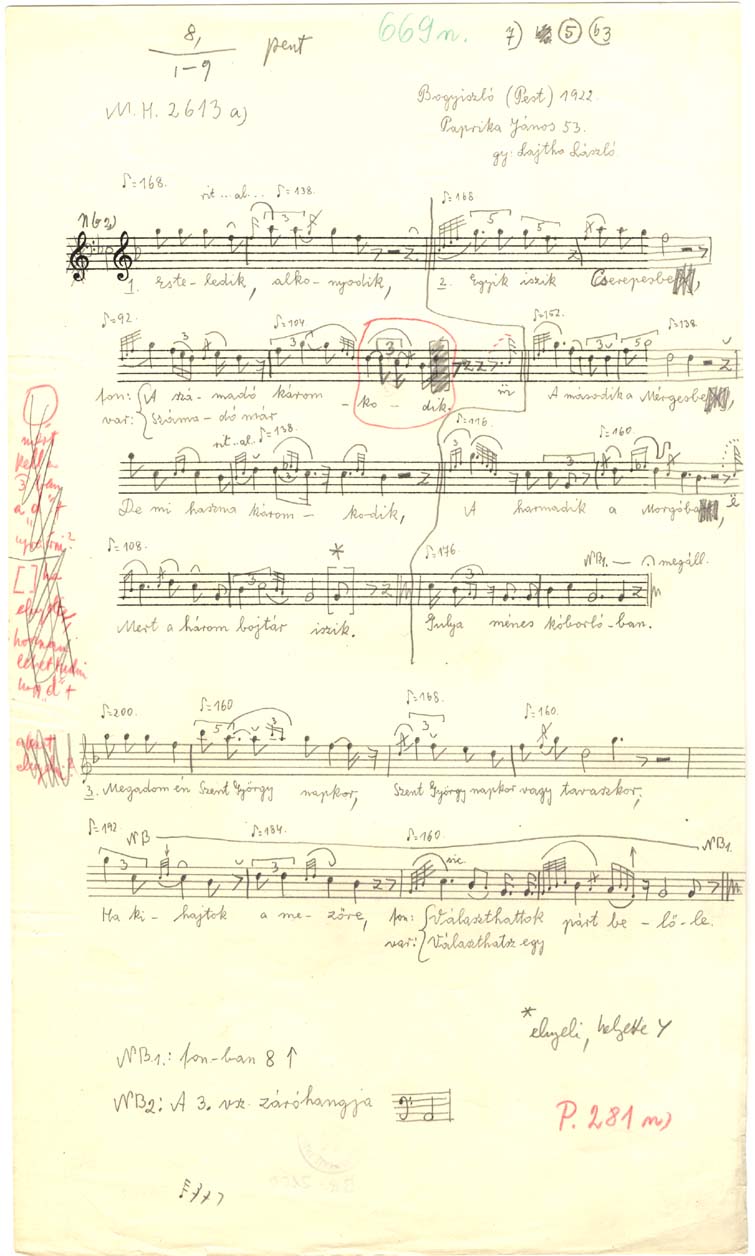 8,
1–9
pent
669n.
7) 5 b3
M. H. 2613 a)
Bogyiszló (Pest) 1922.
Paprika János 53.
gy. Lajtha László
♪=168.
rit...al...
♪=138.
♪=168
NB2)
3
5
5
1. Este-ledik, alko-nyodik,
2. Egyik iszik Cserepesbe
♪=92.
♪=104
♪=152.
♪=138.
3
3
3
3
5
fon: A szá-madó károm-ko-dik.
var: Száma-dó már
A második a Mérgesbe
rit..al..♪=138.
♪=116.
♪=160.
3
3
De mi haszna károm-ko-dik,
A harmadik a Morgóba
♪=108.
*
♪=176.
NB1. — megáll.
3
3
Mert a három bojtár iszik.
Gulya ménes kóborló-ban.
miért
kell a
3
a
[ ] ha
lehet
♪=200.
♪=160
♪=168.
♪=160.
5
3
3
3. Megadom én Szent György napkor,
Szent György napkor vagy tavaszkor,
♪=192.
NB
♪=184.
♪=160.
NB1.
3
3
sic.
Ha ki-hajtok a me-zőre,
fon: Választhattok párt be-lő-le.
var: Választhatsz egy
* elnyeli, helyette
NB1.: fon-ban 8 ↑
NB2: A 3. vsz. záróhangja
P. 281 m)